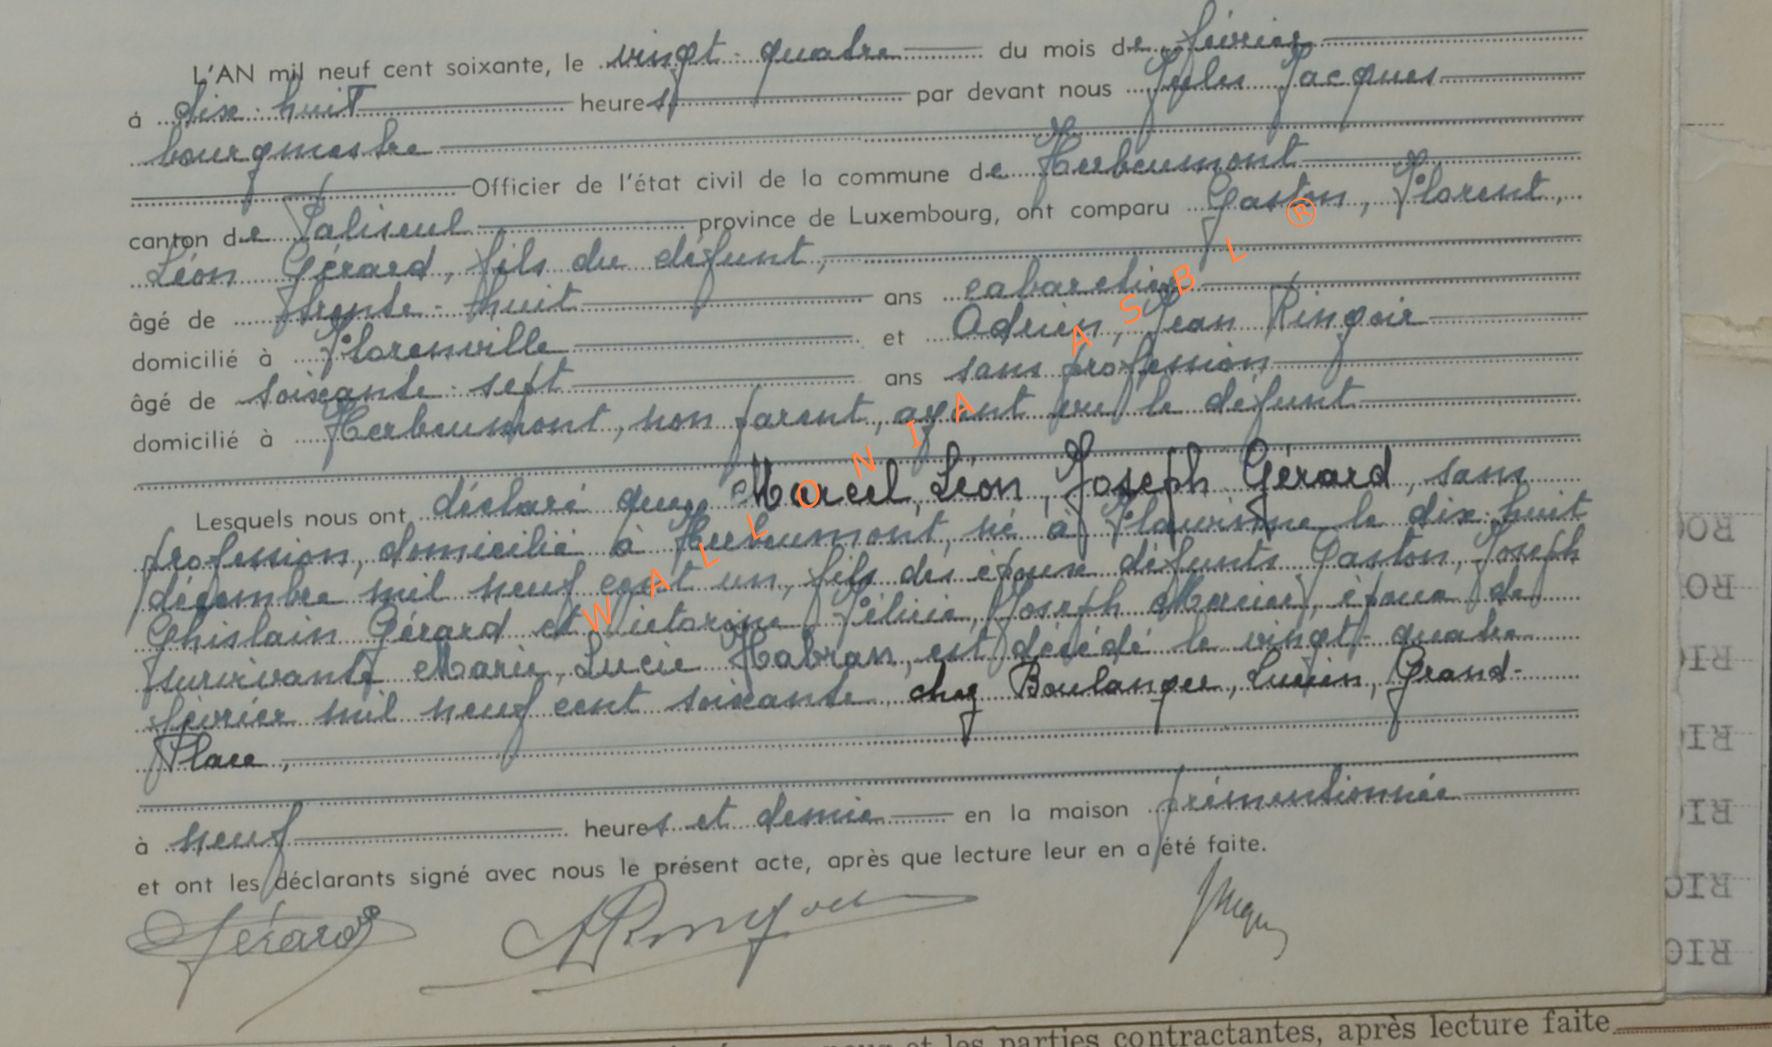 L'AN mil neuf cent soixante, le vingt-quatre du mois de février
à dix-huit heures par devant nous Jules Jacques
bourgmestre
Officier de l'état civil de la commune de Herbeumont
canton de Paliseul province de Luxembourg, ont comparu Gaston, Florent,
Léon Gérard, fils du défunt,
âgé de trente-huit ans cabaretier
domicilié à Florenville et Adrien, Jean Ringoir
âgé de soixante-sept ans sans profession
domicilié à Herbeumont, non parent, ayant vu le défunt
Lesquels nous ont déclaré que Marcel, Léon, Joseph Gérard, sans
profession, domicilié à Herbeumont, né à le dix-huit
décembre mil neuf cent un, fils des époux défunts Gaston, Joseph
Ghislain Gérard et Victorine, Félicie, Joseph Mercier, époux de
survivante Marie, Lucie Habran, est décédé le vingt-quatre
février mil neuf cent soixante chez Boulanger, Lucien, Grand-
Place,
à neuf heures et demie en la maison prémentionnée
et ont les déclarants signé avec nous le présent acte, après que lecture leur en a été faite.
Gérard ARingoir Jacques
WALLONIA ASBL ®
et les parties contractantes, après lecture faite